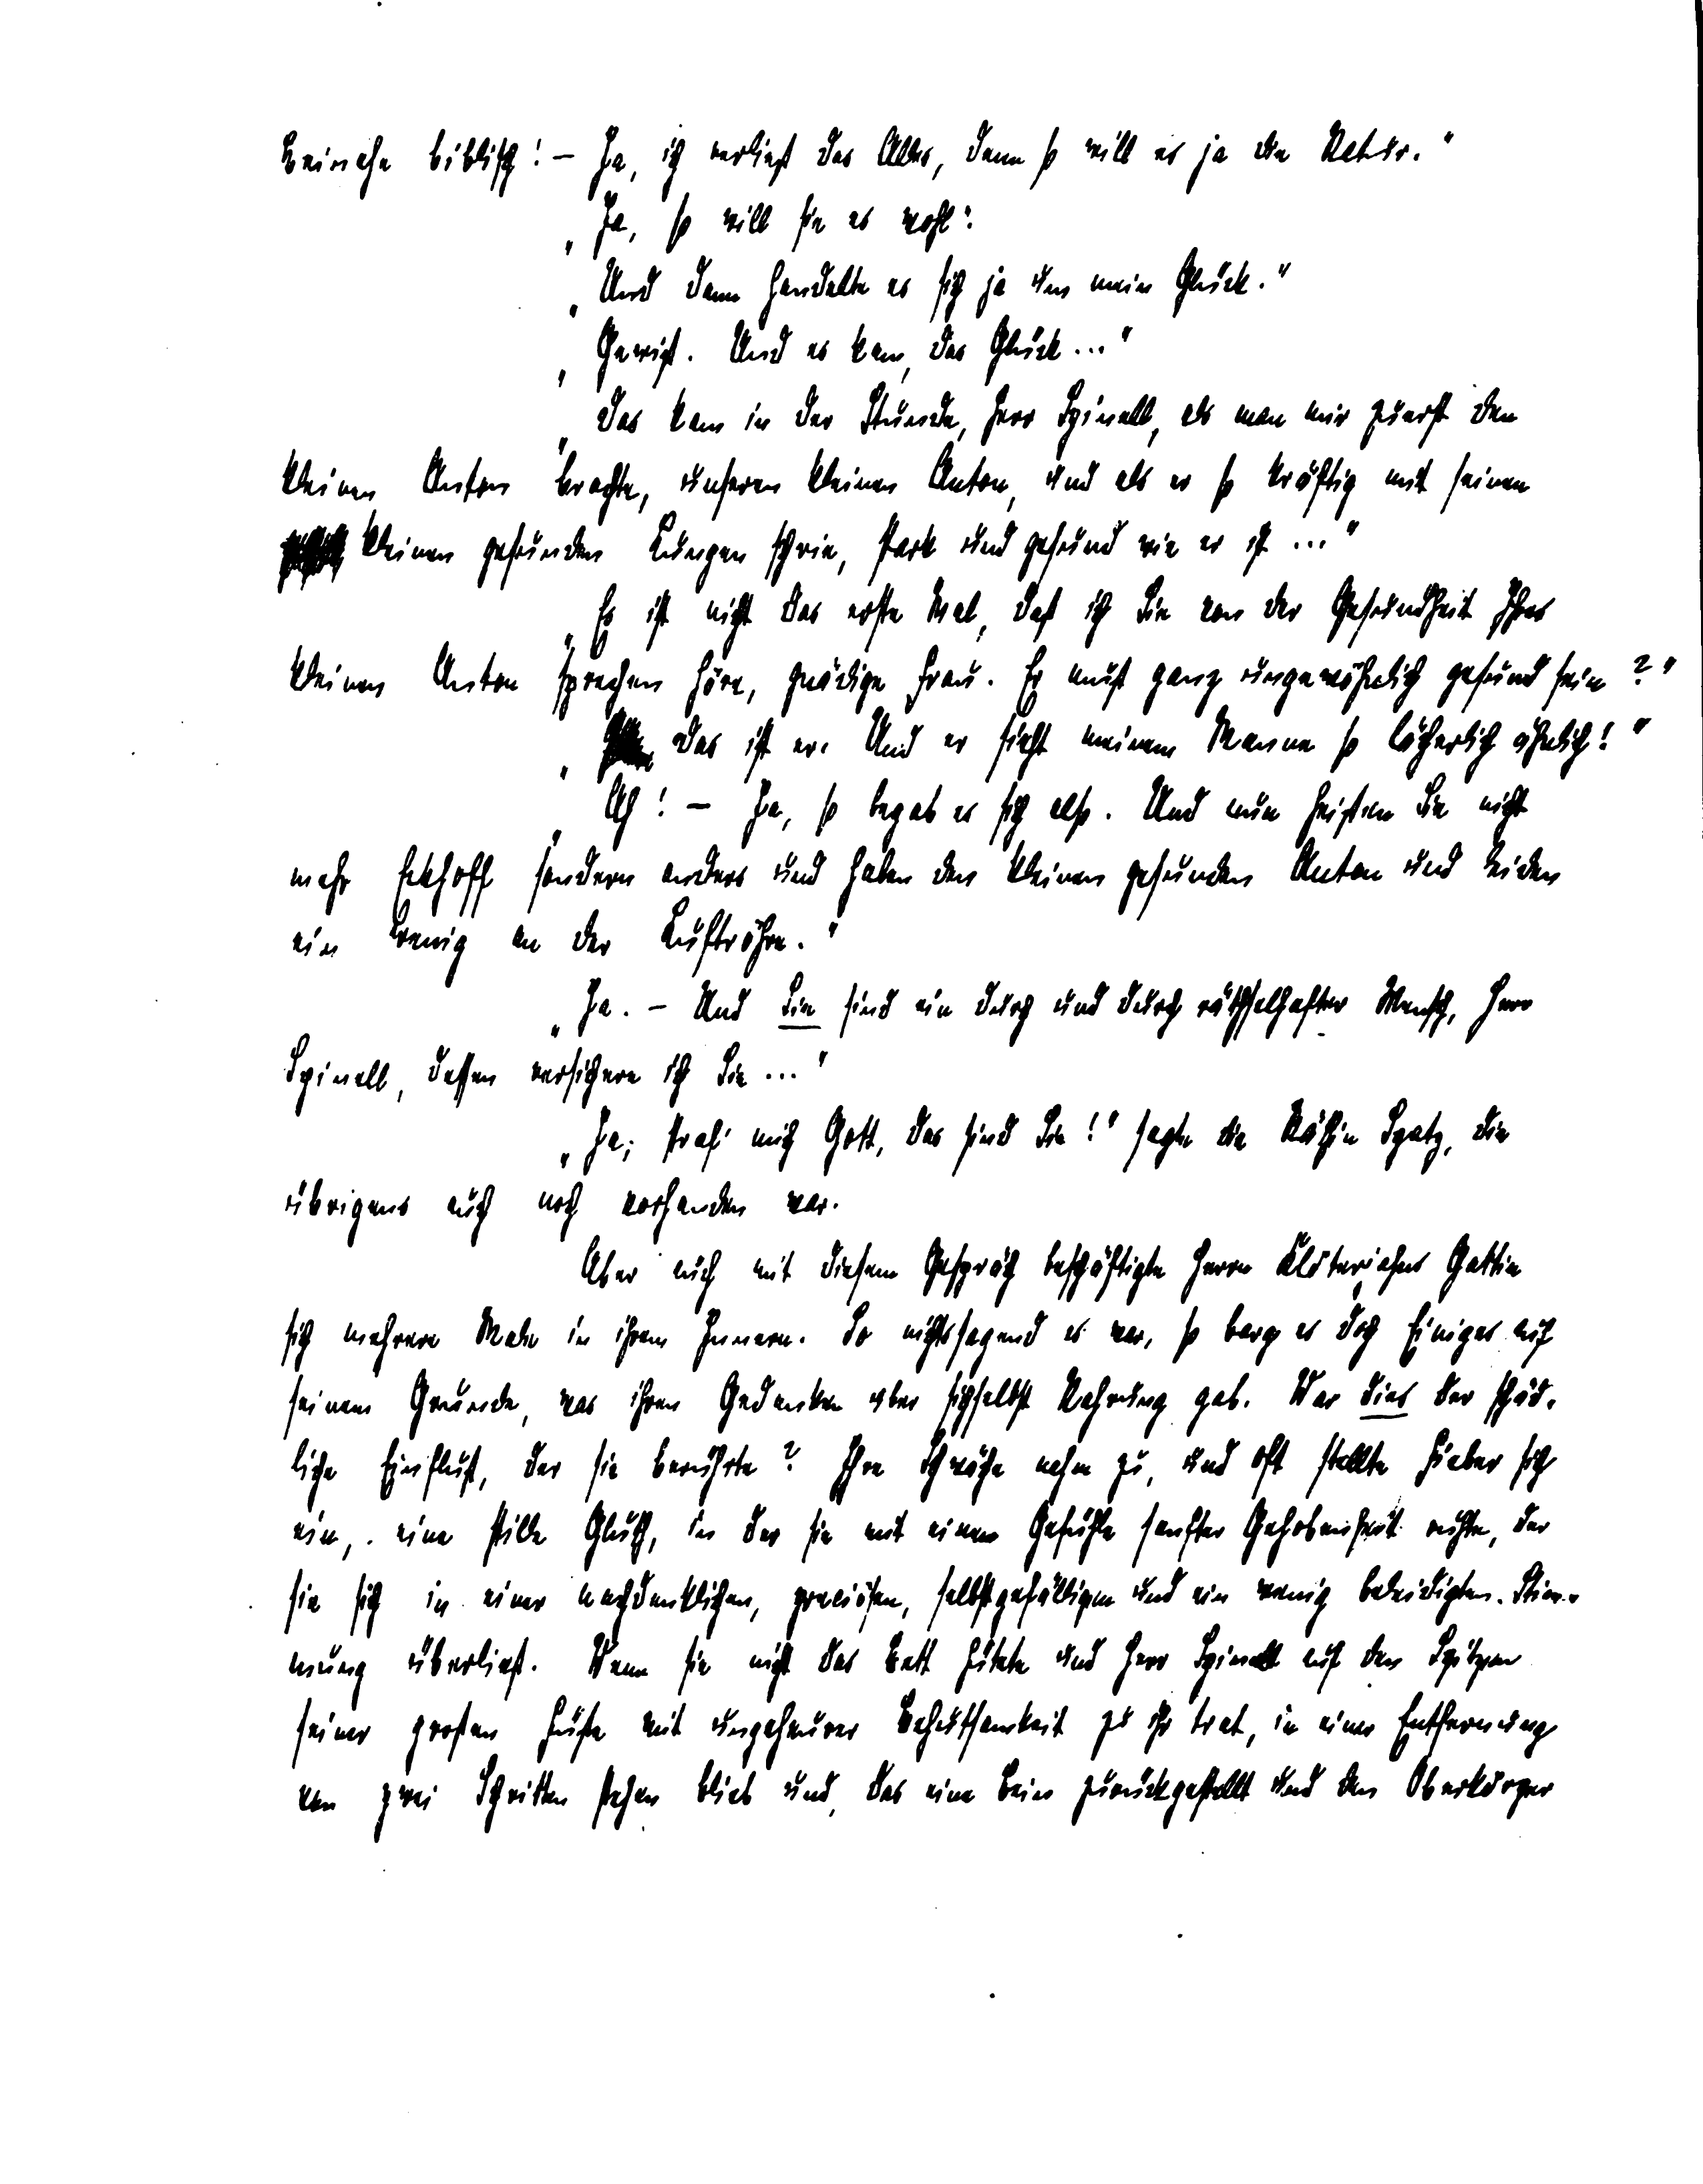 Beinahe biblisch! – Ja, ich verließ das Alles, denn so will es ja die Natur."
„Ja, so will sie es wohl".
„Und dann handelte es sich ja um mein Glück."
„Gewiß. Und es kam, das Glück..."
„Das kam in der Stunde, Herr Spinell, als man mir zuerst den
kleinen Anton brachte, unseren kleinen Anton, und als er so kräftig mit seinen
kleinen gesunden Lungen schrie, stark und gesund wie er ist ..."
„Es ist nicht das erste Mal, daß ich Sie von der Gesundheit Ihres
kleinen Anton sprechen höre, gnädige Frau. Er muß ganz ungewöhnlich gesund sein?"
„Das ist er. Und er sieht meinem Manne so lächerlich ähnlich!"
„Ah! – Ja, so begab es sich also. Und nun heißen Sie nicht
mehr Eckhoff sondern anders und haben den kleinen gesunden Anton und leiden
ein wenig an der Luftröhre."
„Ja. – Und Sie sind ein durch und durch räthselhafter Mensch, Herr
Spinell, dessen versichere ich Sie ..."
„Ja; straf' mich Gott, das sind Sie!" sagte die Räthin Spatz, die
übrigens auch noch vorhanden war.
Aber auch mit diesem Gespräch beschäftigte Herrn Klöterjahns Gattin
sich mehrere Male in ihrem Inneren. So nichtssagend es war, so barg es doch Einiges auf
seinem Grunde, was ihren Gedanken über sichselbst Nahrung gab. War dies der schäd-
liche Einfluß, der sie berührte? Ihre Schwäche nahm zu, und oft stellte Fieber sich
ein, eine stille Gluth, in der sie mit einem Gefühle sanfter Gehobenheit ruhte, der
sie sich in einer nachdenklichen, preciösen, selbstgefälligen und ein wenig beleidigten Stim-
mung überließ. Wenn sie nicht das Bett hütete und Herr Spinell auf den Spitzen
seiner großen Füße mit ungeheurer Behutsamkeit zu ihr trat, in einer Entfernung
von zwei Schritten stehen blieb und, das eine Bein zurückgestellt und den Oberkörper